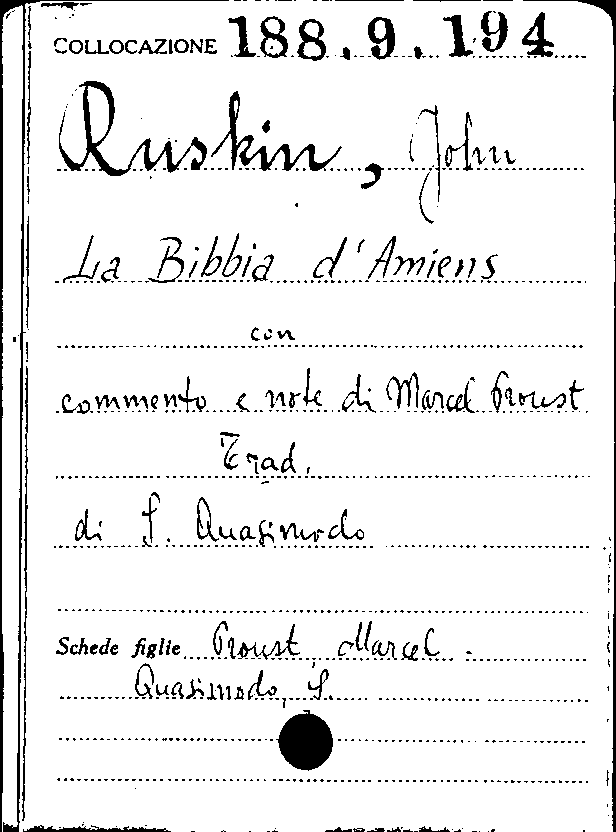 COLLOCAZIONE 188.9.194
Ruskin, John
La Bibbia d'Amiens
con
commento e note di Marcel Proust
Trad.
di S. Quasimodo
Schede figlie Proust, Marcel.
Quasimodo, S.